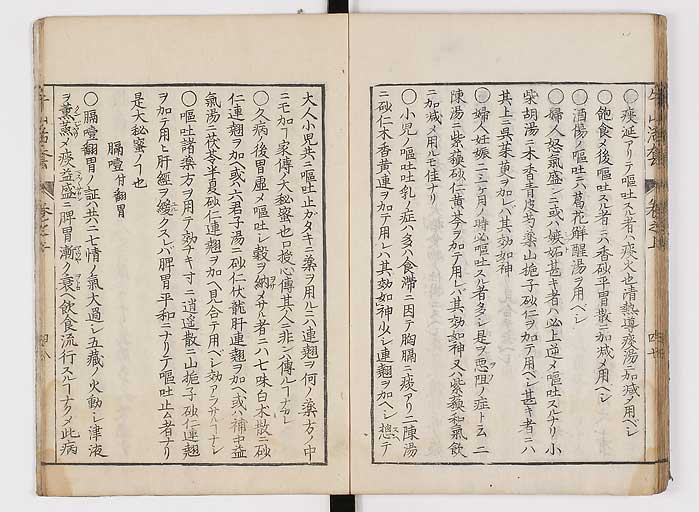 ○痰涎アリテ嘔吐スル者ハ痰火也清熱導痰湯ニ加減メ用ベシ
○飽食メ後嘔吐スル者ニハ香砂平胃散ニ加減メ用ベシ
○酒傷ノ嘔吐ニハ葛花解醒湯ヲ用ベシ
○婦人怒氣盛ンニ或ハ嫉妬甚キ者ハ必上逆メ嘔吐スルナリ小
柴胡湯ニ木香青皮芍薬山梔子砂仁ヲ加テ用ベシ甚キ者ニハ
其上ニ呉茱萸ヲ加レバ其効如神
○婦人妊娠二三ケ月ノ時必嘔吐スル者多シ是ヲ悪阻ノ症ト云二
陳湯ニ紫蘇砂仁黄芩ヲ加テ用レバ其効如神又ハ紫蘇和氣飲
ニ加減メ用ルモ佳ナリ
○小児ノ嘔吐吐乳ノ症ハ多ハ食滞ニ因テ胸膈ニ痰アリ二陳湯
ニ砂仁木香黄連ヲ加テ用レバ其効如神少シ連翹ヲ加ベシ總テ
大人小児共ニ嘔吐止ガタキニ薬ヲ用ルニハ連翹ヲ何ノ薬方ノ中
ニモ加フ家傳ノ大秘蜜也口授心傳其人ニ非ンバ傳ルナカレ
○久病ノ後胃虚メ嘔吐シ穀ヲ納メザル者ニハ七味白朮散ニ砂
仁連翹ヲ加ヘ或ハ六君子湯ニ砂仁伏龍肝連翹ヲ加ヘ或ハ補中益
氣湯ニ茯苓半夏砂仁連翹ヲ加ヘ見合テ用ベシ効アラザルナシ
○嘔吐諸薬方ヲ用テ効ナキ寸ニ逍遥散ニ山梔子砂仁連翹
ヲ加テ用ヒ肝經ヲ緩クスレバ脾胃平和ニナリテ嘔吐止ム者ナリ
是大秘蜜ノ也
膈噎付翻胃
○膈噎翻胃ノ証ハ共ニ七情ノ氣大過シ五蔵ノ火動シ津液
ヲ薫蒸メ痰益盛ニ脾胃漸ク衰ヘ飲食流行スルナクメ此病
巻之上